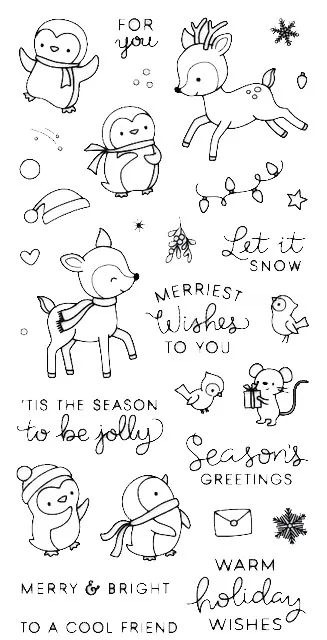 FOR
you
Let it
SNOW
MERRIEST
Wishes
TO YOU
'TIS THE SEASON
to be jolly
Season's
GREETINGS
WARM
holiday
WISHES
MERRY & BRIGHT
TO A COOL FRIEND